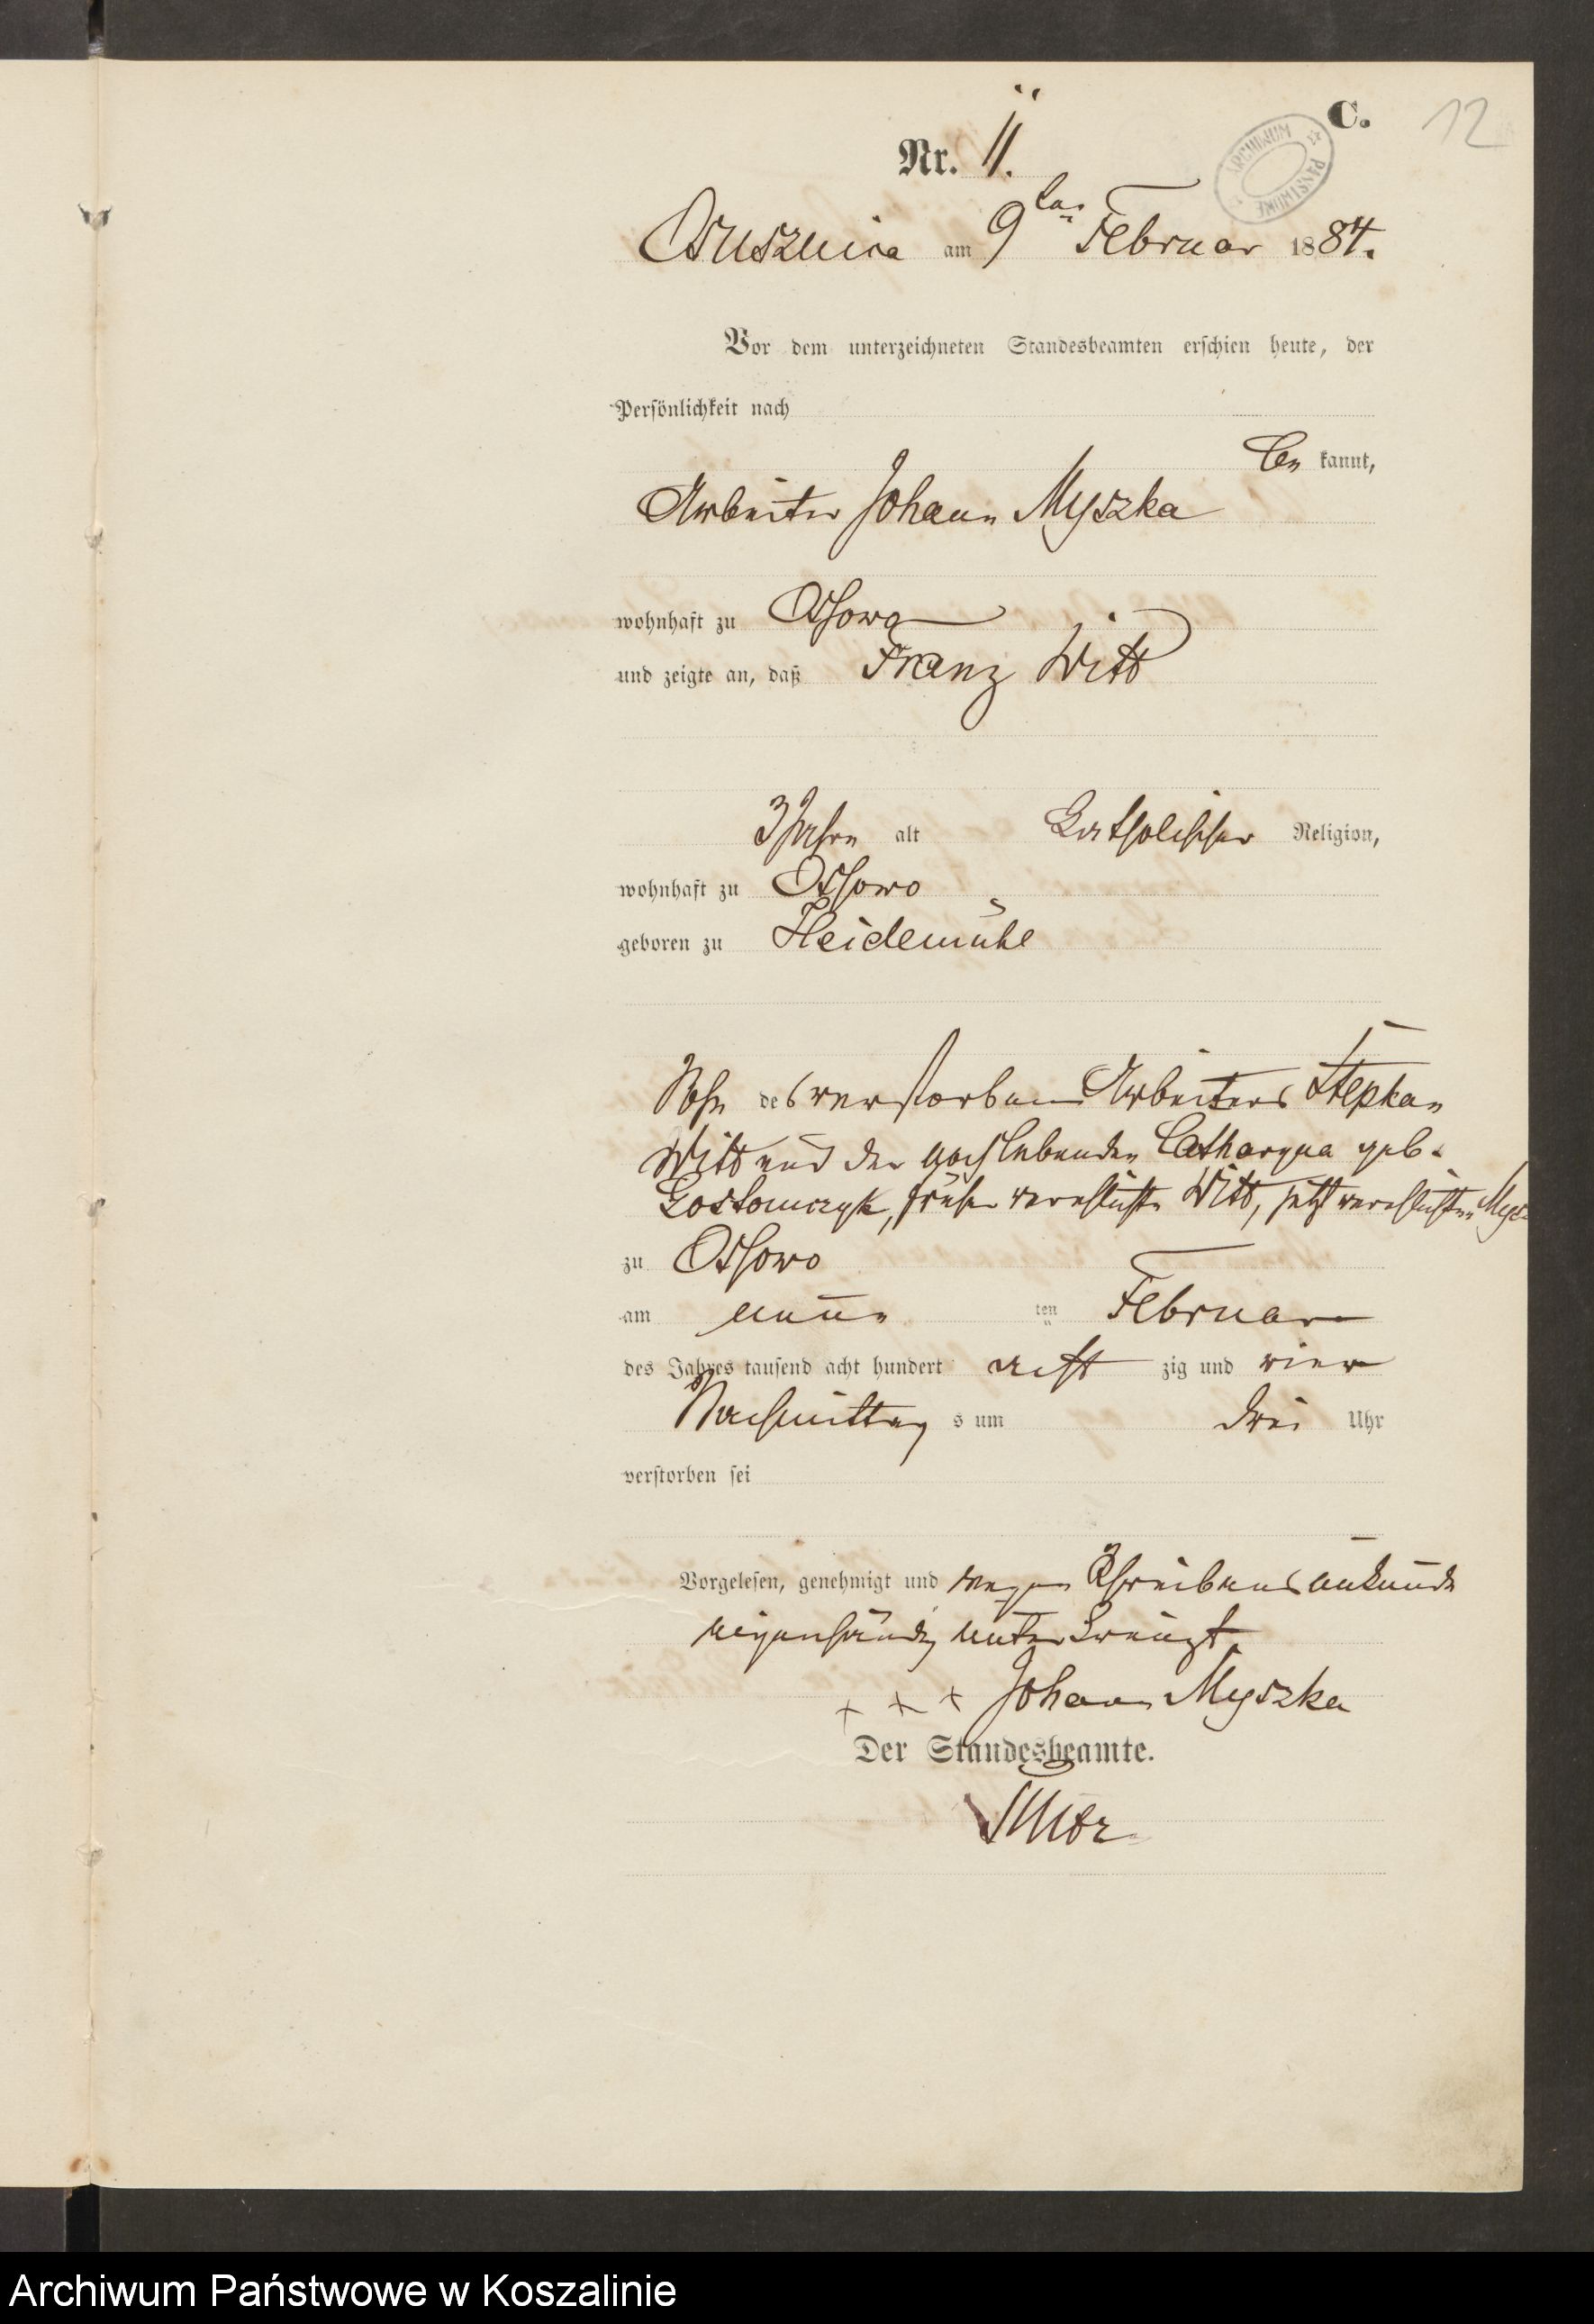 C.
12
Nr. 11.
ARCHIWUM PAŃSTWOWE
Osusznica am 9ten Februar 1884.
Vor dem unterzeichneten Standesbeamten erschien heute, der
Persönlichkeit nach
be kannt,
Arbeiter Johann Myszka
wohnhaft zu Ossowo
und zeigte an, daß Franz Witt
3 Jahre alt katholischer Religion,
wohnhaft zu Ossowo
geboren zu Heidemühl
Sohn des verstorbenen Arbeiters Stephan
Witt und der noch lebenden Catharyna geb.
Gostomczyk, früher verehelichte Witt, jetzt verehelichten Mysz
zu Ossowo
am neun ten Februar
des Jahres tausend acht hundert acht zig und vier
Nachmittag s um drei Uhr
verstorben sei
Vorgelesen, genehmigt und wegen Schreibensunkunde
eigenhändig unterkreuzt
+ + + Johann Myszka
Der Standesbeamte.
Archiwum Państwowe w Koszalinie